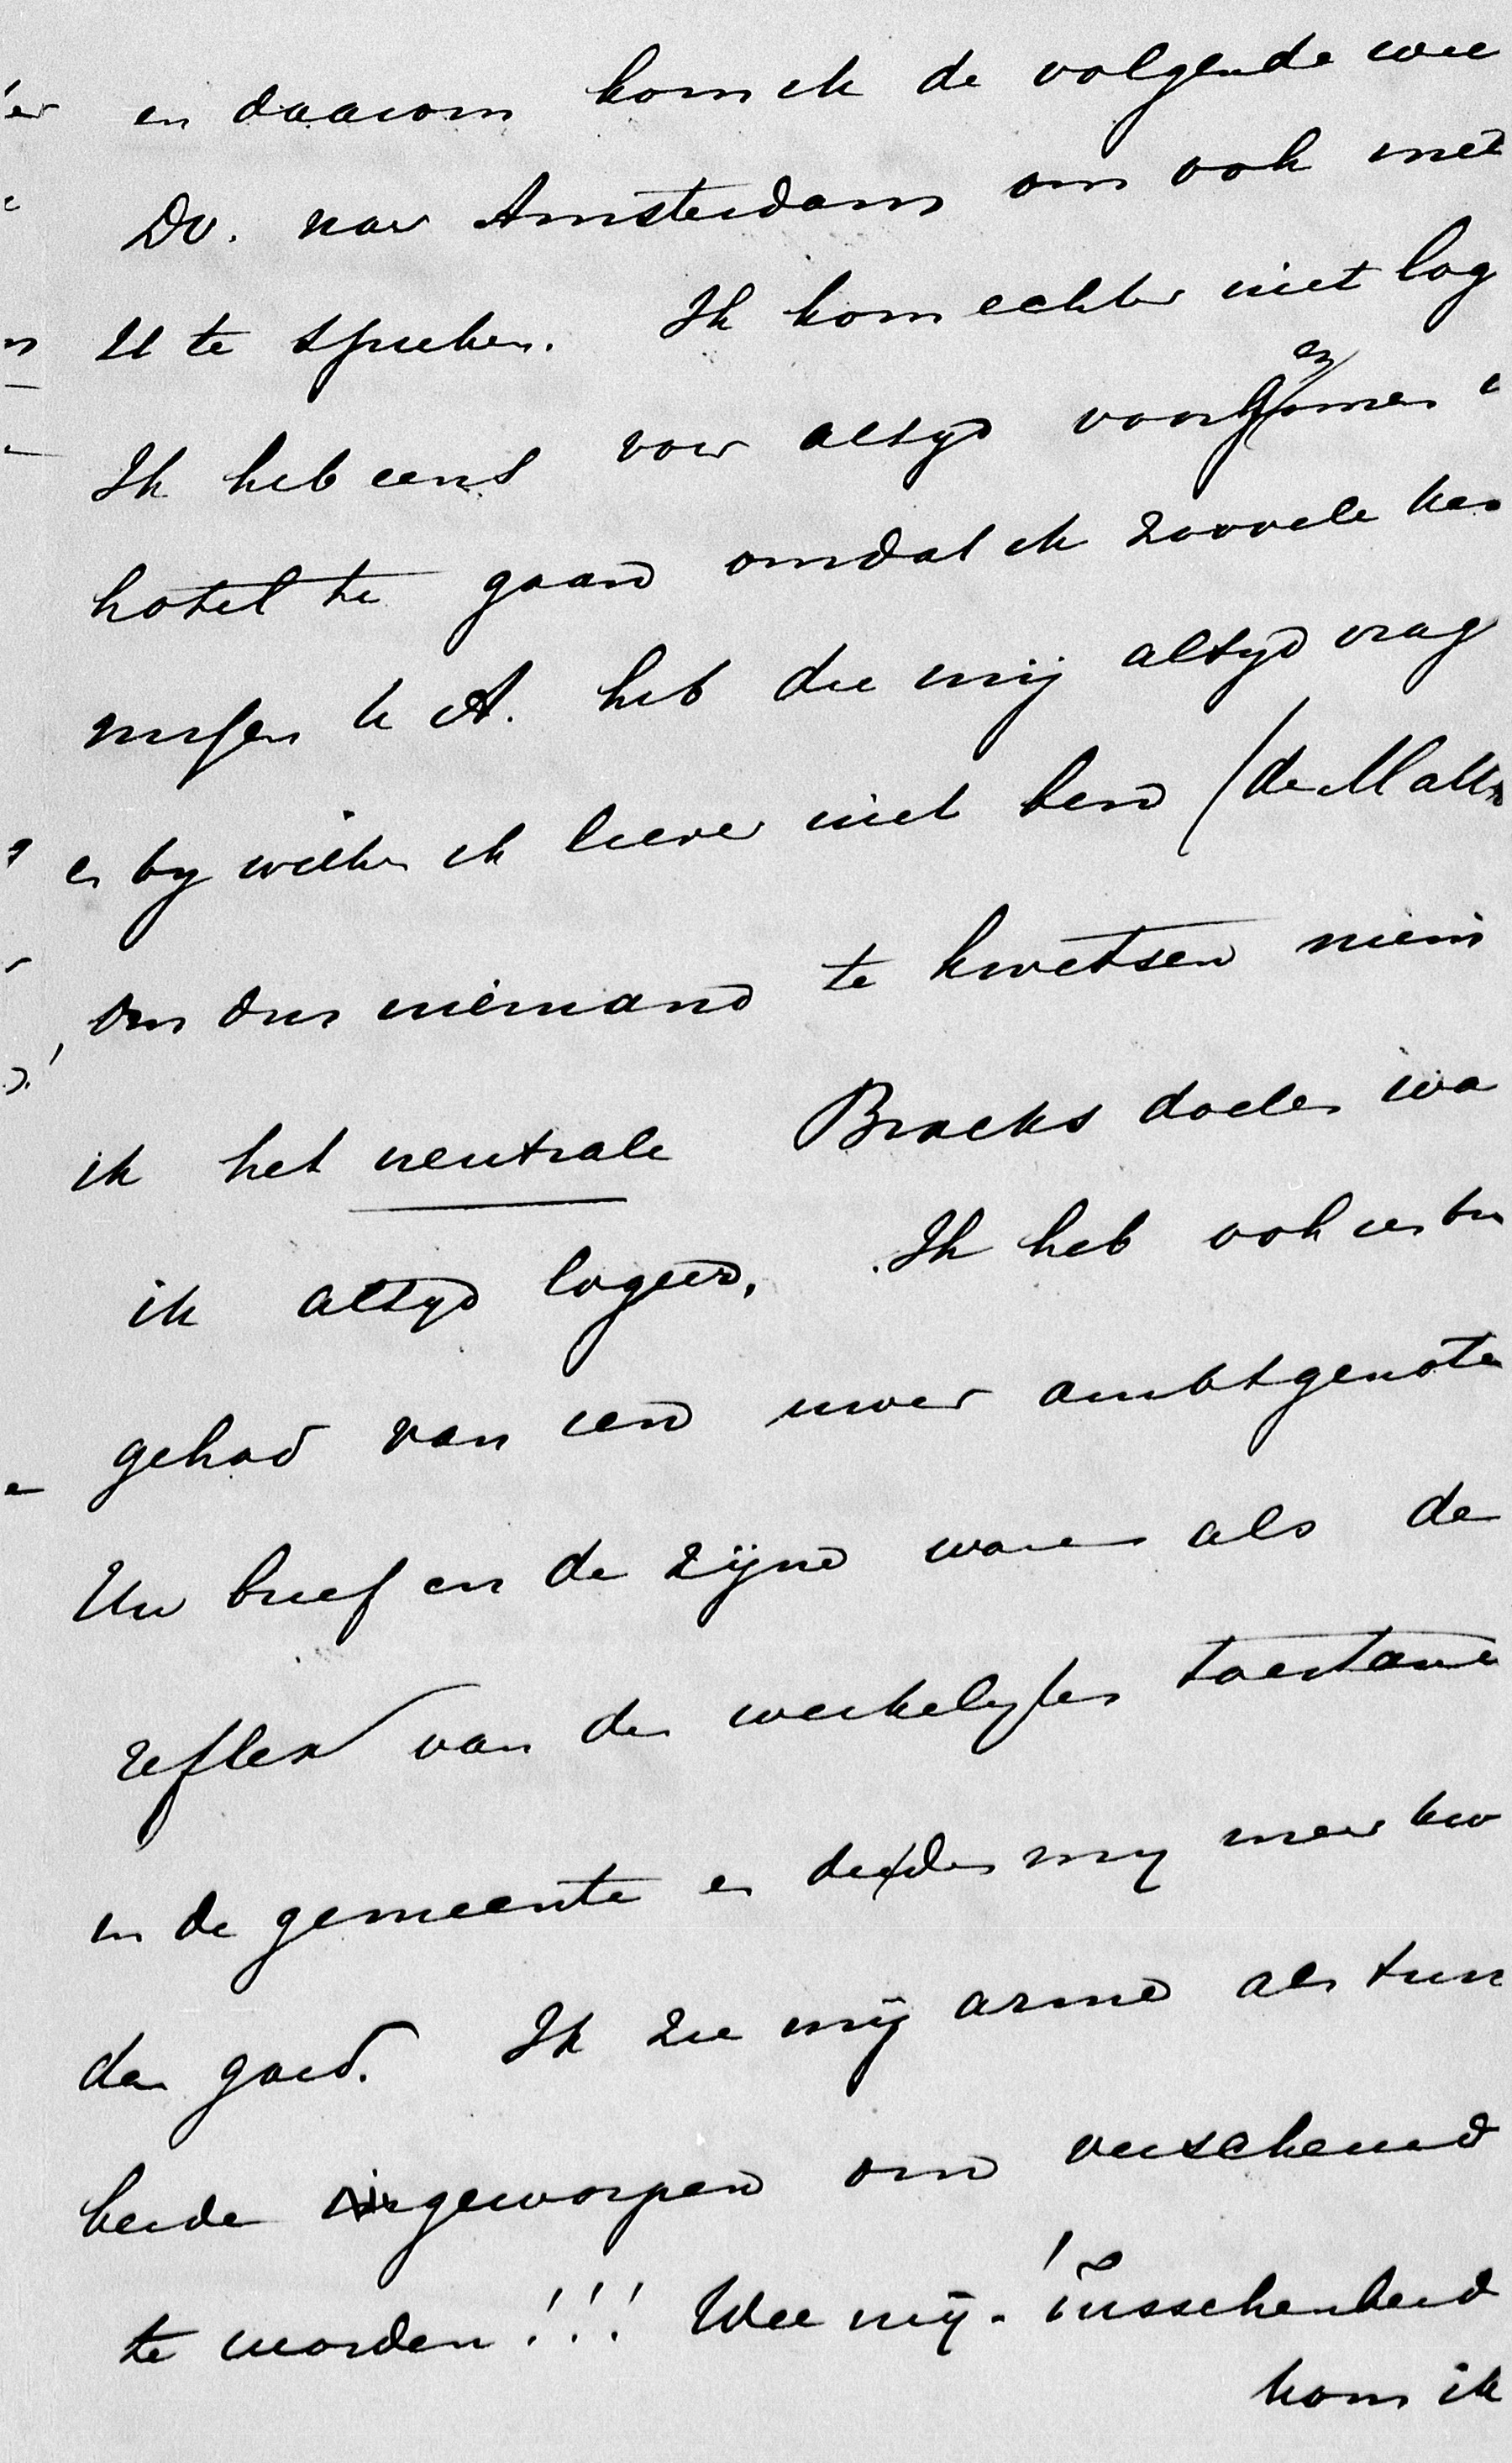 en daarom kom ik de volgende wee
DV. naar Amsterdam om ook met
U te spreken. Ik kom echter niet log
Ik heb eens voor altyd voorgenomen
hotel te gaan omdat ik zoovele ken
nissen te A. heb die mij altyd vrag
en by wien ik liever niet ben (de Matt
om dus niemand te kwetsen neem
ik het neutrale Bracks doelen wa
ik altyd logeer. Ik heb ook een br
gehad van een uwer ambtgenote
Uw brief en de zijne waren als de
reflex van den werkelyken toestand
in de gemeente en deden my meer kw
dan goed. Ik zie mij arme als tus
beide geworpen om verscheurd
te worden!!! Wee mij. tusschenbeid
kom ik